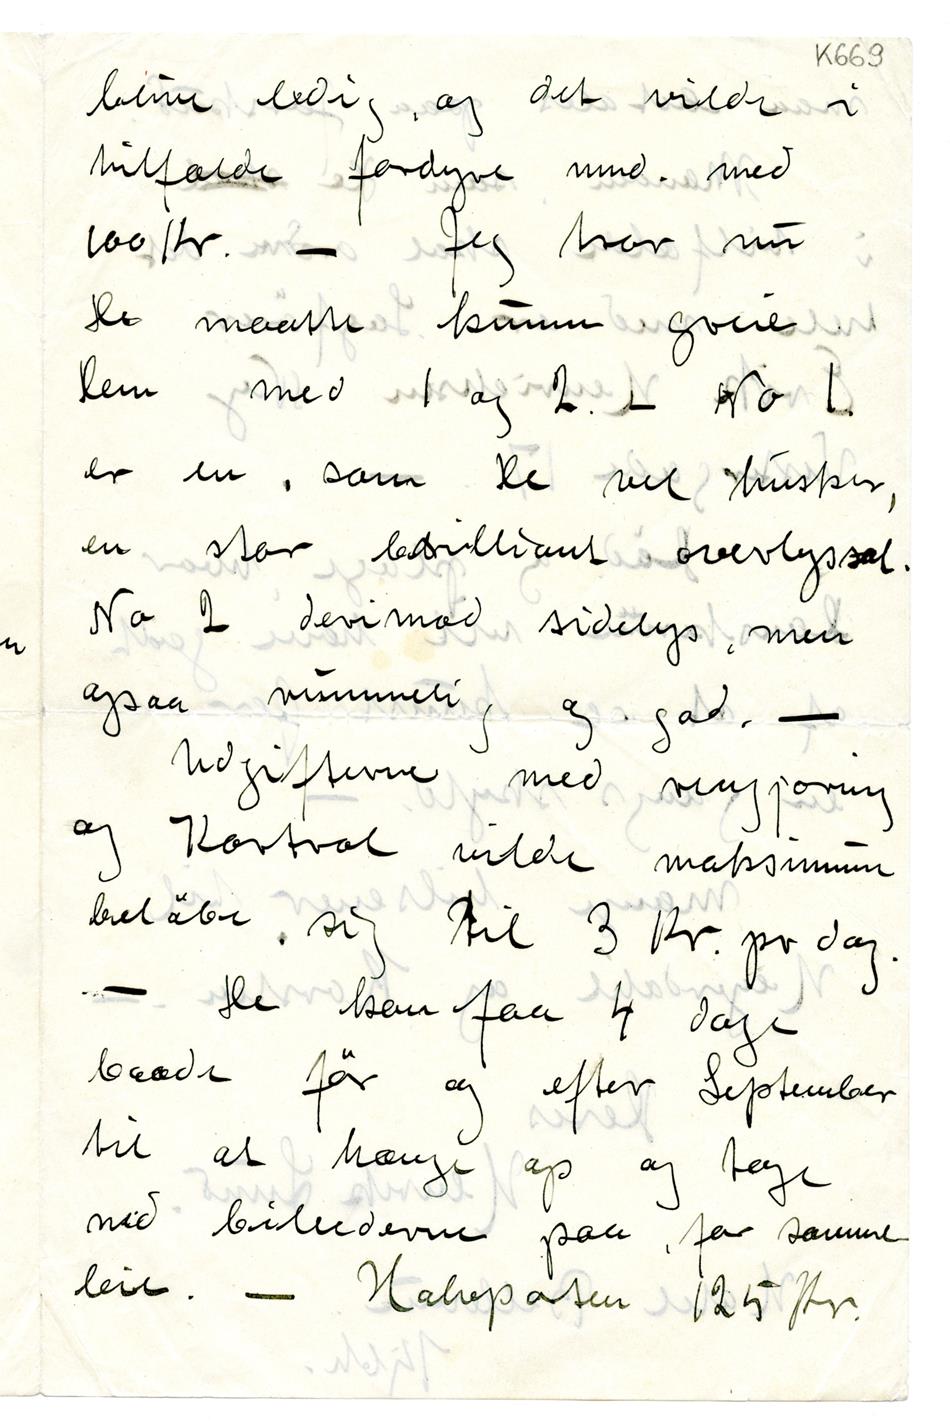 K669
blive ledig, og det vilde i
tilfælde fordyre med. med
100 Kr. — Jeg tror nu
De maatte kunne greie
Dem med 1 og 2. — No 1.
er en, som De vel husker,
en stor brilliant overlyssal.
No 2 derimod sidelys, men
ogsaa rummelig og god. —
Udgifterne med rengjøring
og Kontrol vilde maksimum
beløbe sig til 3 Kr. pr dag.
— De kan faa 4 dage
baade før og efter September
til at hænge op og tage
ned billederne paa, for samme
leie. — Halvparten 125 Kr.